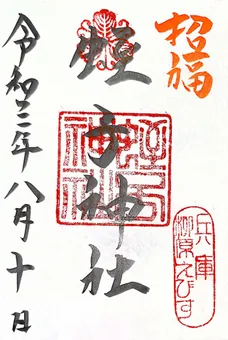 招福
兵庫
柳原えびす
蛭子神社
令和三年八月十日